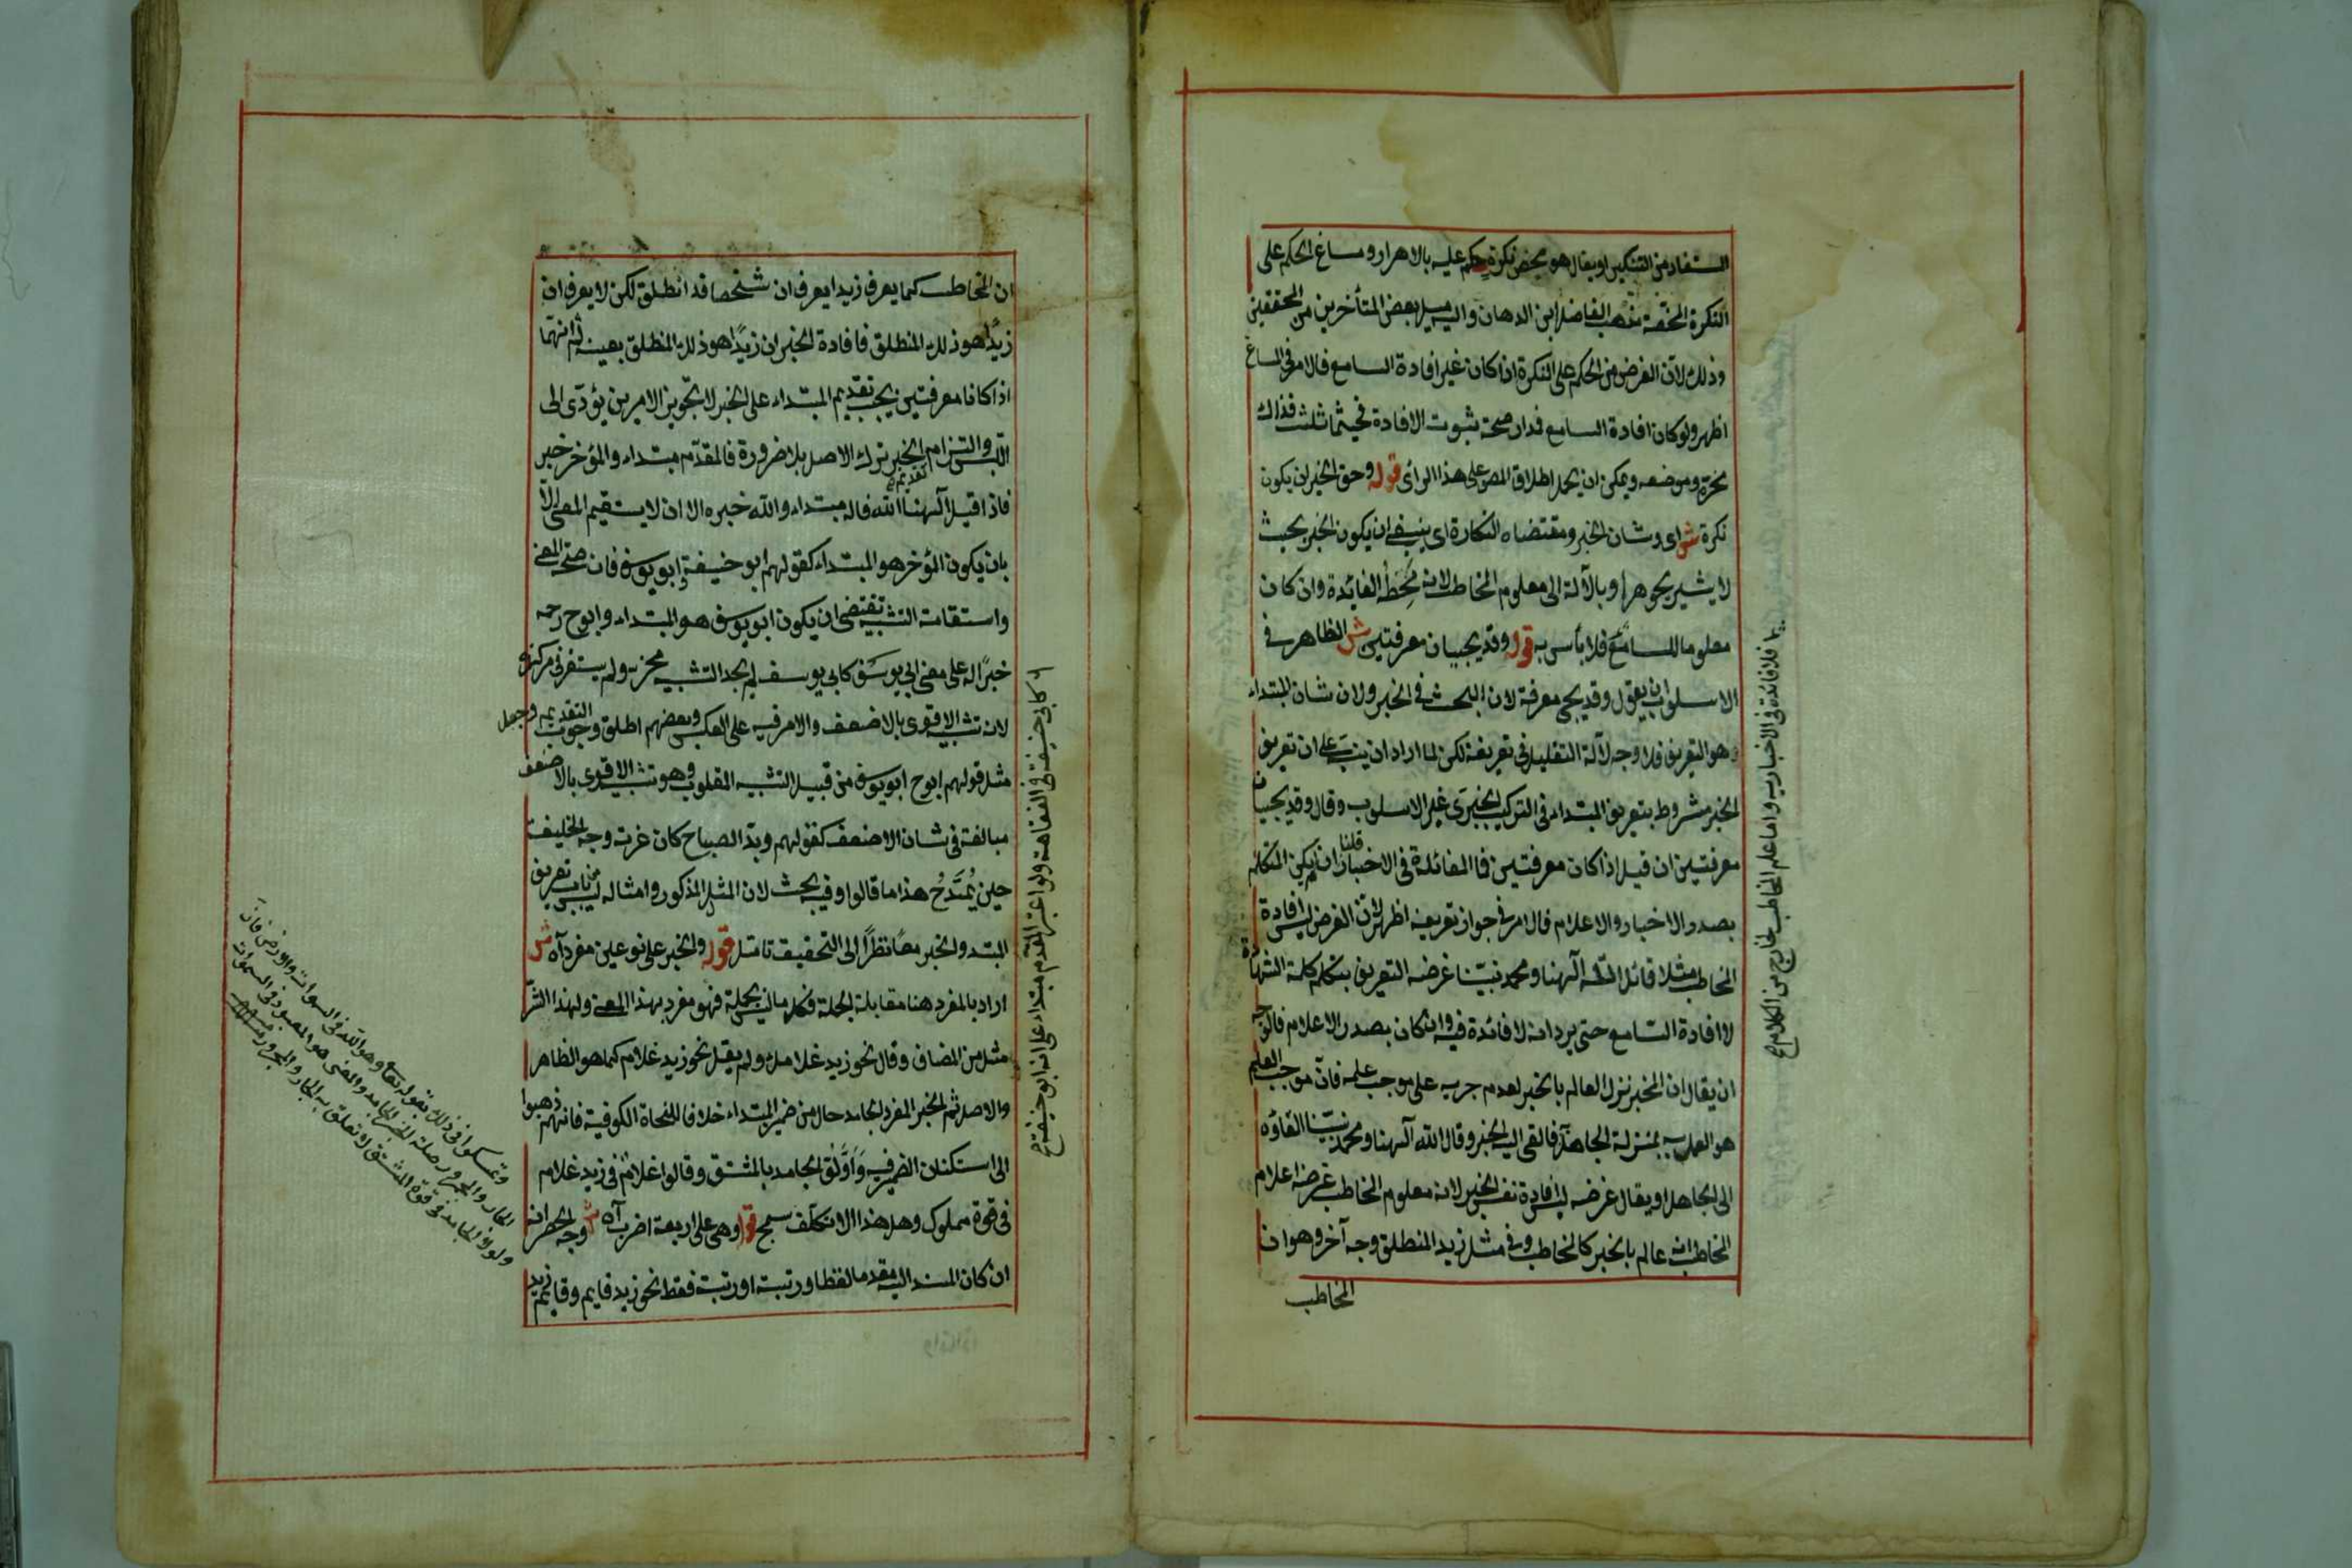 المستفاد من التنكير او يقال هو محض نكرة حكم عليه بالاهرار ومساغ الحكم على
النكرة المحضة مذهب الفاضل ابن الدهان واليه ميل بعض المتأخرين من المحققين
وذلك لان الغرض من الحكم على النكرة ان كان غير افادة السامع فالامر في المساغ
اظهر ولو كان افادة السامع فدار صحته ثبوت الافادة فحيثما ثلثت فذاك
محزه وموضعه ويمكن ان يحمل اطلاق المص على هذا الرأى قوله وحق الخبر ان يكون
نكرة ش اى وشان الخبر ومقتضاه النكارة اى ينبغى ان يكون الخبر بحيث
لا يشير بجوهر او بالآلة الى معلوم المخاطب لانه محط الفائدة وان كان
معلوما للسامع فلا بأس به قوله وقد يجيان معرفتين ش الظاهر في
الاسلوب ان يقول وقد يجئ معرفة لان البحث في الخبر ولان شان المبتداء
هو التعريف فلا وجه لآلة التقليل في تعريفه لكن لما اراد ان ينبه على ان تعريف
الخبر مشروط بتعريف المبتداء في التركيب الخبرى غير الاسلوب وقال وقد يجيان
معرفتين ان قيل اذا كان معرفتين فما الفائدة في الاخبار قلنا ان لم يكن المتكلم
بصدد الاخبار والاعلام فالامر في جواز تعريفه اظهر لان الغرض ليس افادة
المخاطب مثلا قائل الله آلهنا ومحمد نبينا غرضه التعريف بتكلم كلمة الشهادة
لا افادة السامع حتى يرد انه لا فائدة فيه وان كان بصدد الاعلام فالوجه
ان يقال ان المخبر نزل العالم بالخبر لعدم جريه على موجب علمه فان موجب العلم
هو العمل به بمنزلة الجاهل فالقى اليه الخبر وقال الله آلهنا ومحمد نبينا القاؤه
الى الجاهل او يقال غرضه ليس افادة نفس الخبر لانه معلوم المخاطب غرضه اعلام
المخاطب انه عالم بالخبر كالمخاطب وفي مثل زيد المنطلق وجه آخر وهو ان
المخاطب
فلا فائدة في الاخبار به واما علم المخاطب الخارج من الكلام
ان المخاطب كما يعرف زيدا يعرف ان شخصا قد انطلق لكن لا يعرف ان
زيدًا هو ذلك المنطلق فافادة الخبر ان زيدًا هو ذلك المنطلق بعينه ثم انهما
اذا كانا معرفتين يجب تقديم المبتداء على الخبر لا تجويز الامرين يؤدى الى
اللبس والتزام تقديم الخبر ترك الاصل بلا ضرورة فالمقدم مبتداء والمؤخر خبر
فاذا قيل آلهنا الله فاله مبتداء والله خبره الا ان لا يستقيم المعنى الا
بان يكون المؤخر هو المبتداء كقولهم ابو حنيفة ابو يوسف فان صحة المعنى
واستقامة التشبيه تقتضى ان يكون ابو يوسف هو المبتداء وابو ح رحمه
خبرًا له على معنى ابى يوسف كابى يوسف لم يجد التشبيه محزه ولم يستقر في مركزه
لان تشبيه الاقوى بالاضعف والامر فيه على العكس وبعضهم اطلق وجوب التقديم وجعل
مثل قولهم ابو ح ابو يوسف من قبيل التشبيه المقلوب وهو تشبيه الاقوى بالاضعف
مبالغة في شان الاضعف كقولهم وبدا الصباح كان غرته وجه الخليفة
حين يُمتَدَحُ هذا ما قالوا وفيه بحث لان المثل المذكور وامثاله ليس من باب تعريف
المبتدء والخبر معًا نظرًا الى التحقيق تامل قوله والخبر على نوعين مفرد آه ش
اراد بالمفرد هنا مقابلة الجملة فكل ما ليس بجملة فهو مفرد بهذا المعنى ولهذا
مثل من المضاف وقال نحو زيد غلامك ولم يقل نحو زيد غلام كما هو الظاهر
والاصل ثم الخبر المفرد الجامد خال من ضمير المبتداء خلافا للنحاة الكوفية فانهم ذهبوا
الى استكنان الضمير فيه وَاَوَّلوا الجامد بالمشتق وقالوا غلام في زيد غلام
في قوة مملوك وهل هذا الا تكلف سمج قوله وهي على اربعة اضرب آه ش وجه الحصر انه
ان كان المسند اليه مقدما لفظا ورتبة او رتبة فقط نحو زيد قايم وقايم زيد
كابى حنيفة في الفقاهة ولو اعتبر المقدم مبتداء على انه ابو حنيفة
وتمسكوا في ذلك بقوله تعالى وهو الله في السموات والارض فان
الجار والمجرور صلة للخبر الجامد والمعنى هو المعبود في السموات
ولولا ان الجامد في قوة المشتق لما تعلق به الجار والمجرور